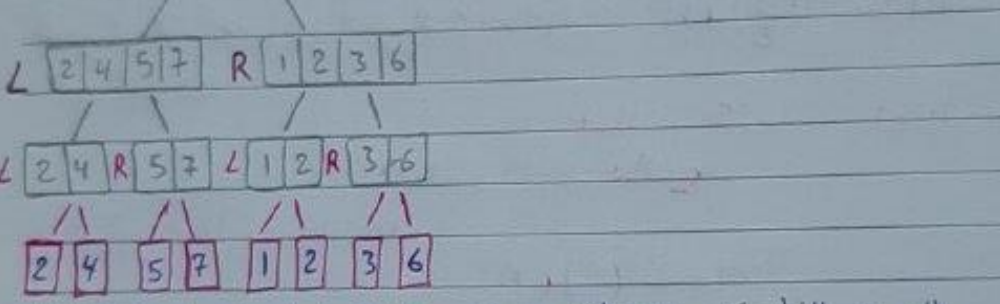 L 2 4 5 7 R 1 2 3 6
L 2 4 R 5 7 L 1 2 R 3 6
2 4 5 7 1 2 3 6